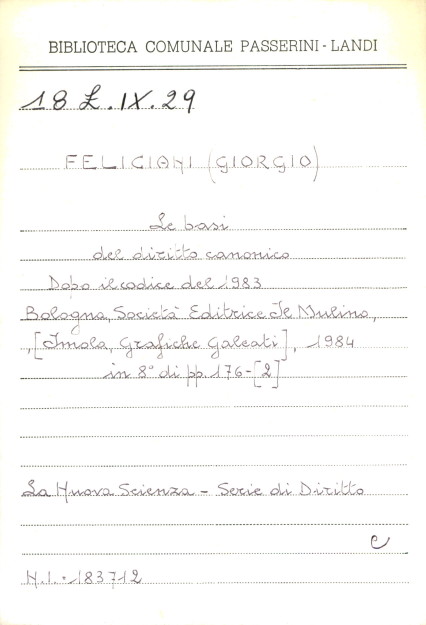 BIBLIOTECA COMUNALE PASSERINI - LANDI
18 L.IX.29
FELICIANI (GIORGIO)
Le basi
del diritto canonico
Dopo il codice del 1983
Bologna, Società Editrice Il Mulino,
,[Imola, Grafiche Galeati], 1984
in 8° di pp. 176-[2]
La Nuova Scienza - Serie di Diritto
C
N.I. 183712